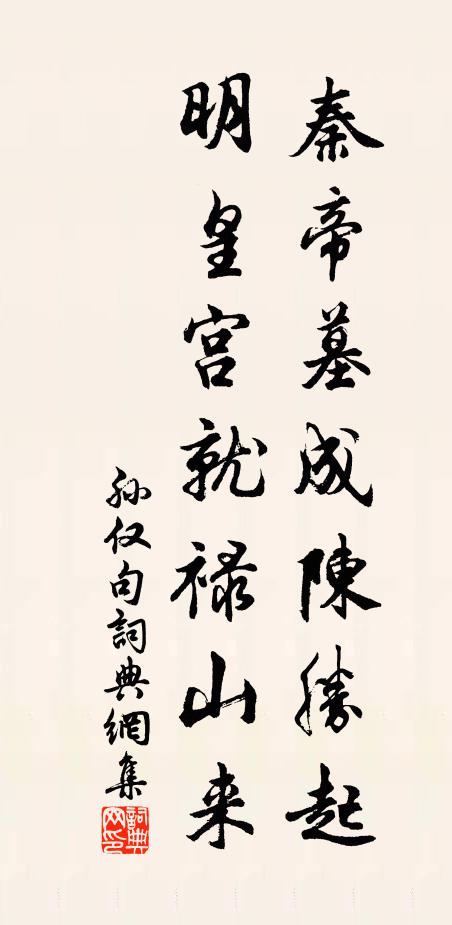 秦帝墓成陳勝起
明皇宫就禄山来
孙仅句詞典網集
詞典网印